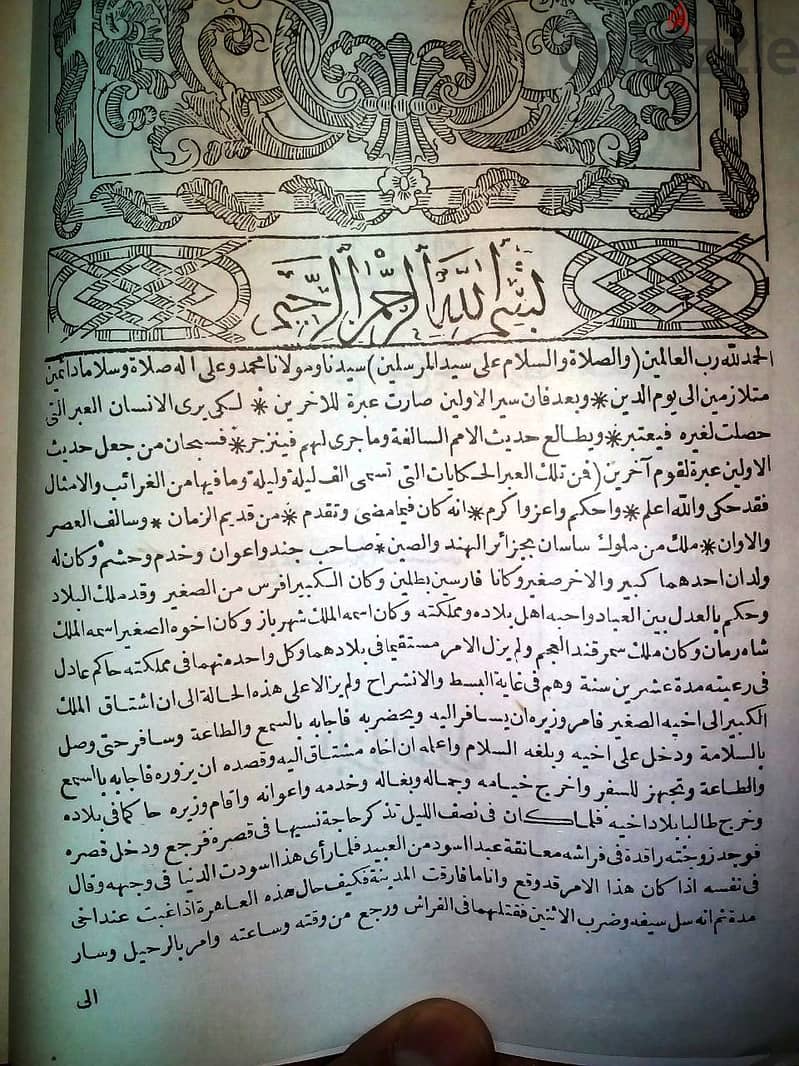 dubizzle
بسم الله الرحمن الرحيم
الحمد لله رب العالمين (والصلاة والسلام على سيد المرسلين) سيدنا ومولانا محمد وعلى اله صلاة وسلاما دائمين
متلازمين الى يوم الدين * وبعد فان سير الاولين صارت عبرة للاخرين * لكى يرى الانسان العبر التى
حصلت لغيره فيعتبر * ويطالع حديث الامم السالفة وما جرى لهم فينزجر * فسبحان من جعل حديث
الاولين عبرة لقوم آخرين (فمن تلك العبر الحكايات التى تسمى الف ليلة وليلة وما فيها من الغرائب والامثال
فقد حكى والله اعلم * واحكم واعز واكرم * انه كان فيما مضى وتقدم * من قديم الزمان * وسالف العصر
والاوان * ملك من ملوك ساسان بجزائر الهند والصين * صاحب جند واعوان وخدم وحشم وكان له
ولدان احدهما كبير والاخر صغير وكانا فارسين بطلين وكان الكبير افرس من الصغير وقد ملك البلاد
وحكم بالعدل بين العباد واحبه اهل بلاده ومملكته وكان اسمه الملك شهرباز وكان اخوه الصغير اسمه الملك
شاه رمان وكان ملك سمرقند العجم ولم يزل الامر مستقيما فى بلادهما وكل واحد منهما فى مملكته حاكم عادل
فى رعيته مدة عشرين سنة وهم فى غاية البسط والانشراح ولم يزالا على هذه الحالة الى ان اشتاق الملك
الكبير الى اخيه الصغير فامر وزيره ان يسافر اليه ويحضر به فاجابه بالسمع والطاعة وسافر حتى وصل
بالسلامة ودخل على اخيه وبلغه السلام واعلمه ان اخاه مشتاق اليه وقصده ان يزوره فاجابه بالسمع
والطاعة وتجهز للسفر واخرج خيامه وجماله وبغاله وخدمه واعوانه واقام وزيره حاكما فى بلاده
وخرج طالبا بلاد اخيه فلما كان فى نصف الليل تذكر حاجة نسيها فى قصره فرجع ودخل قصره
فوجد زوجته راقدة فى فراشه معانقة عبدا اسود من العبيد فلما رأى هذا اسودت الدنيا فى وجهه وقال
فى نفسه اذا كان هذا الامر قد وقع وانا ما فارقت المدينة فكيف حال هذه العاهرة اذا غبت عند اخى
مدة ثم انه سل سيفه وضرب الاثنين فقتلهما فى الفراش ورجع من وقته وساعته وامر بالرحيل وسار
الى